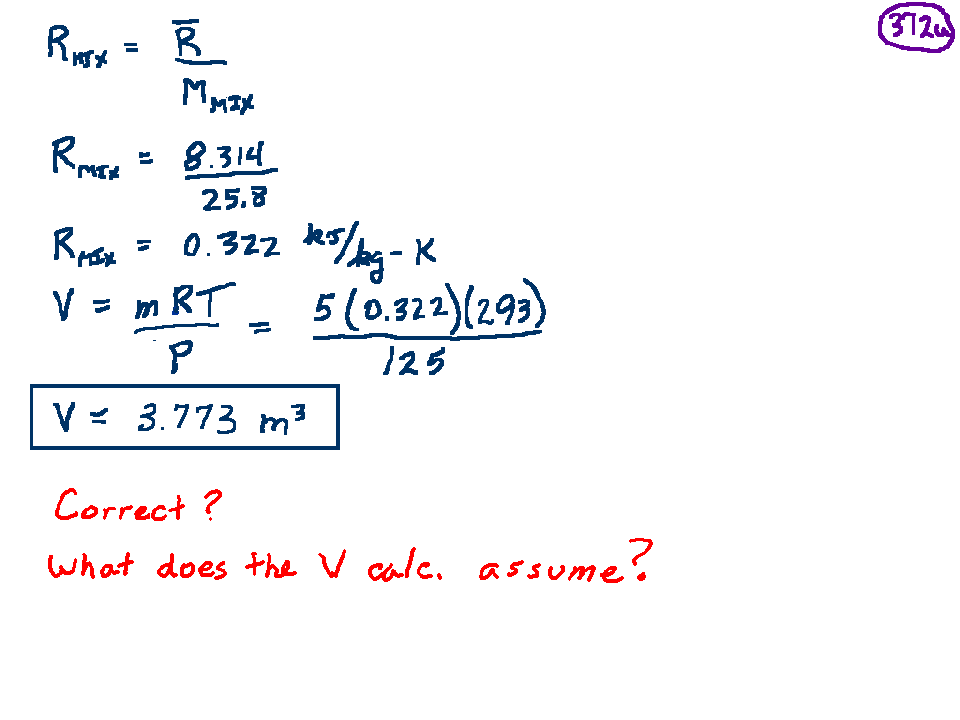 372w
R_MIX = R̅ / M_MIX
R_MIX = 8.314 / 25.8
R_MIX = 0.322 kJ/kg-K
V = mRT / P = 5(0.322)(293) / 125
V = 3.773 m³
Correct?
What does the V calc. assume?